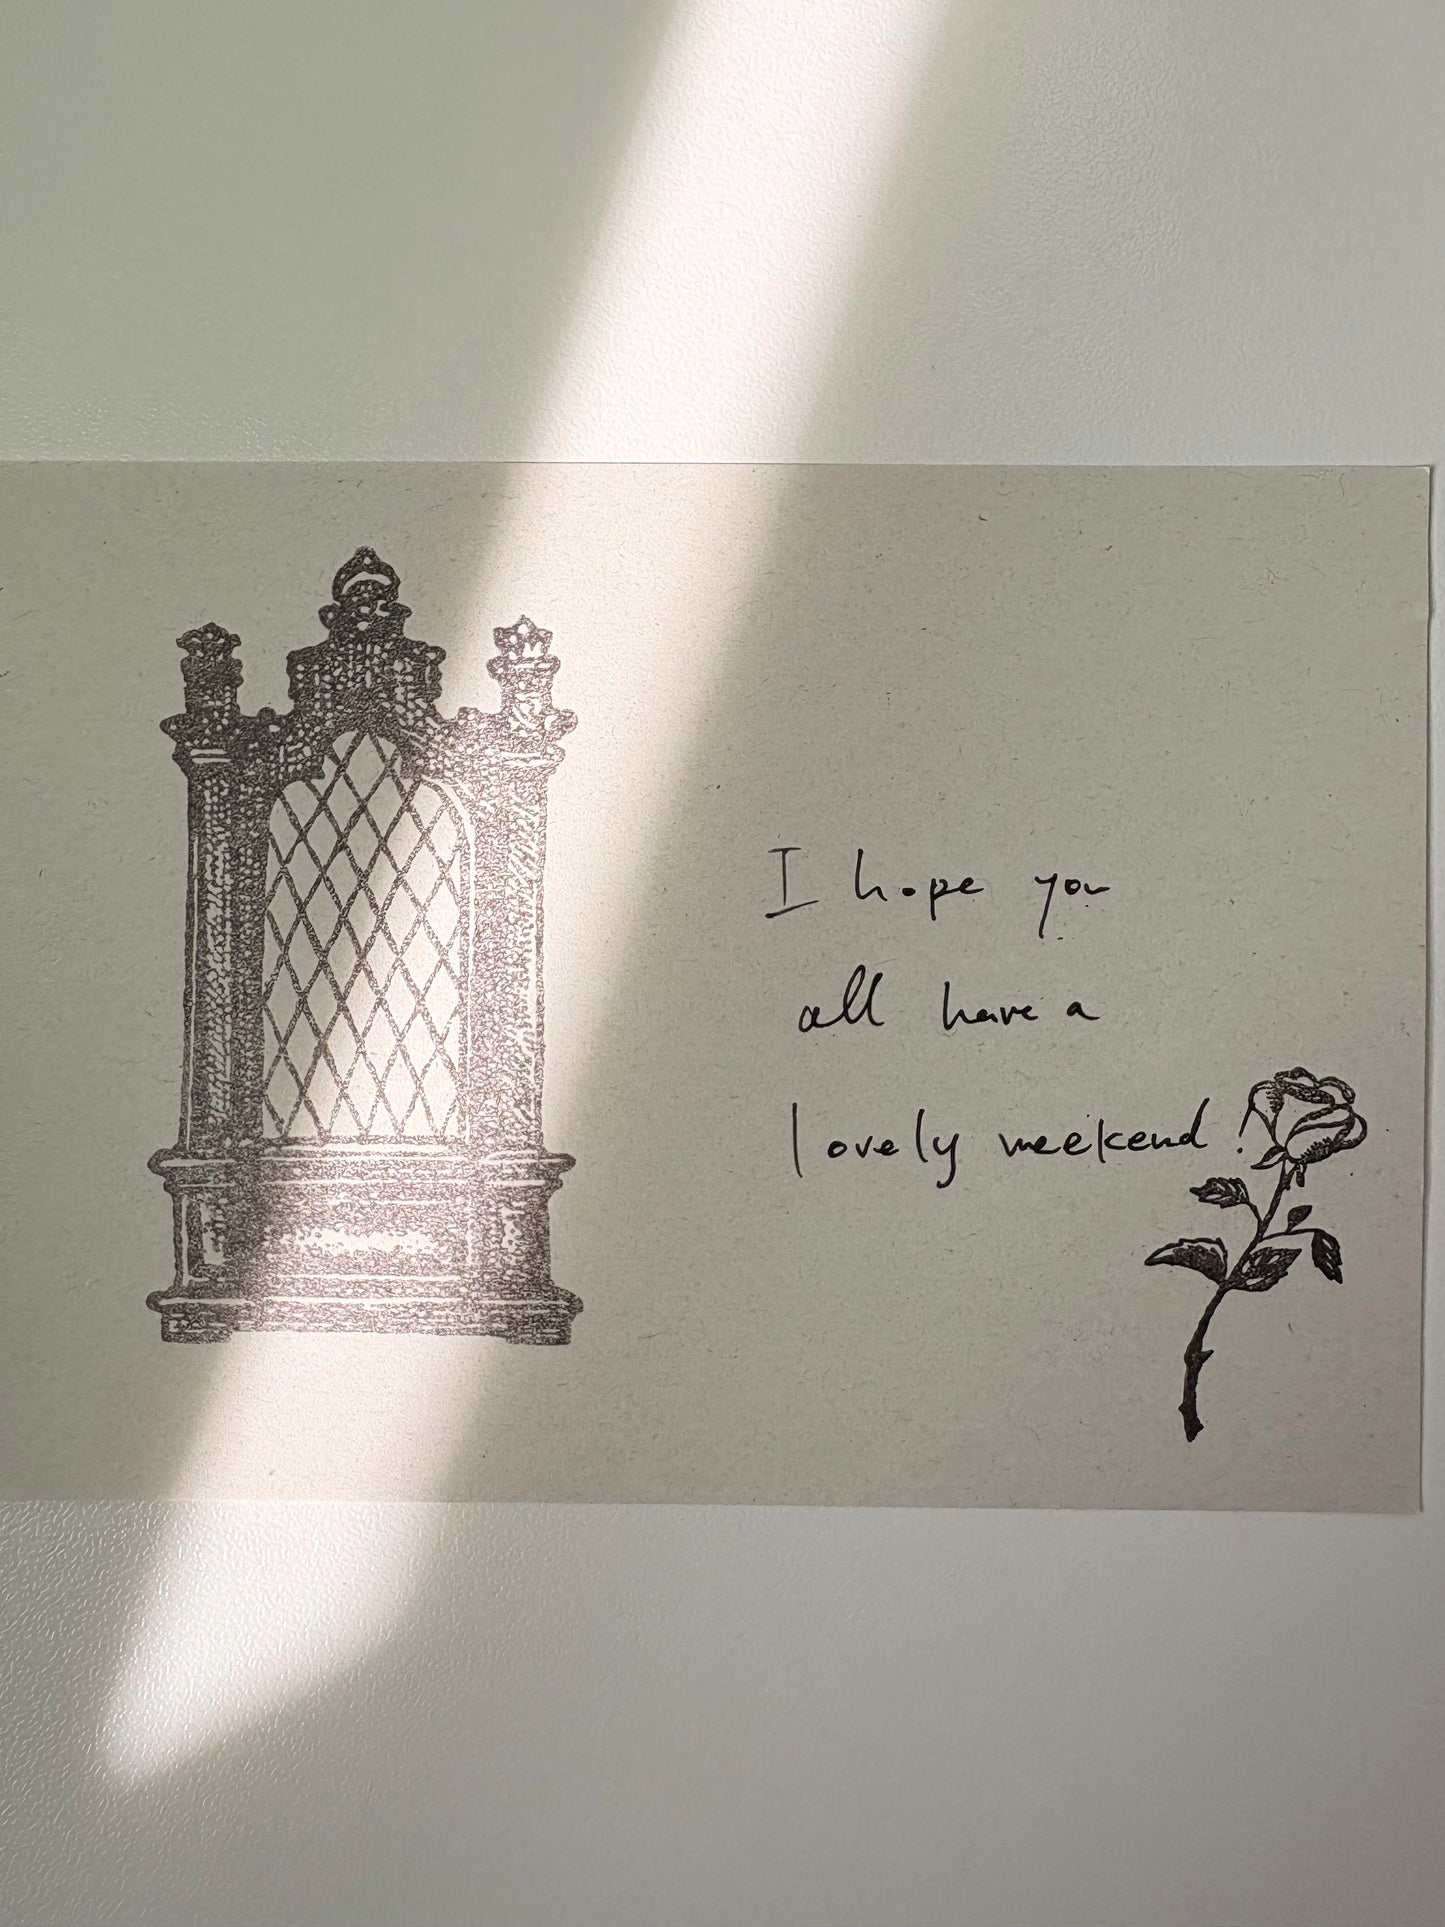 I hope you
all have a
lovely weekend!